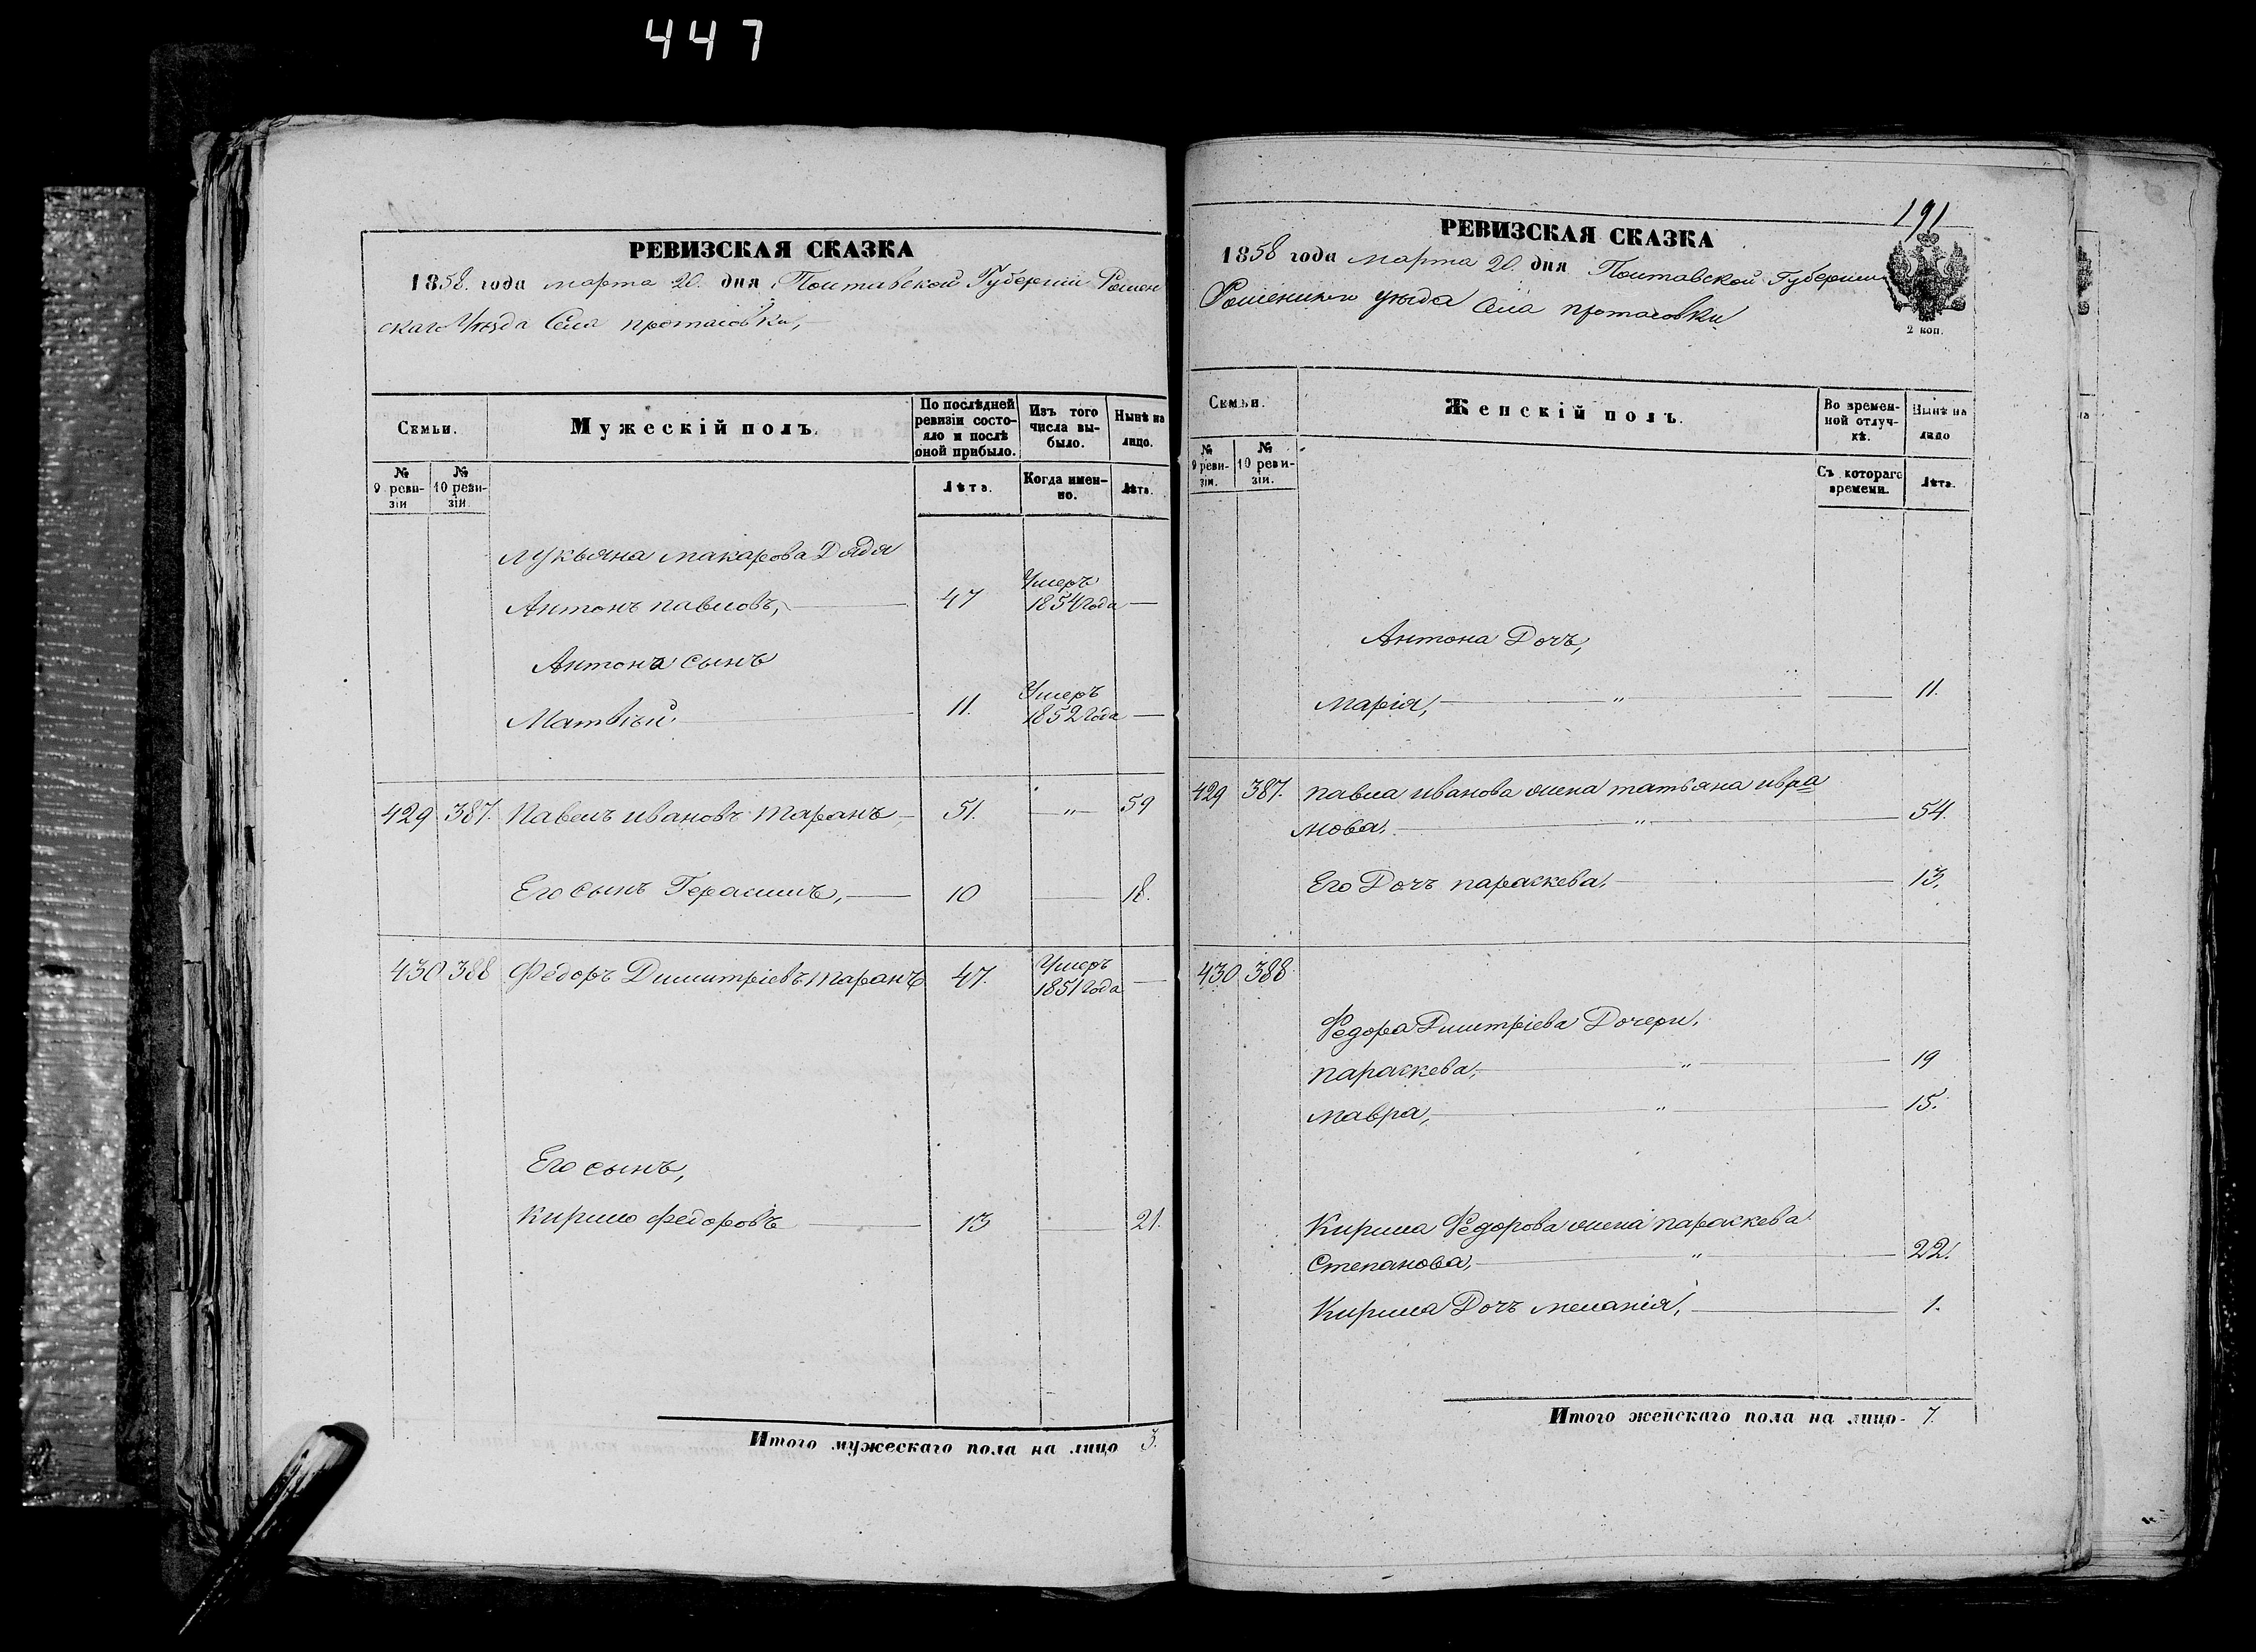 447
РЕВИЗСКАЯ СКАЗКА
1858. года марта 20. дня Полтавской Губерніи Ромен
скаго Уѣзда Села протасовки,
Семьи.
Мужескій полъ.
По послѣдней ревизіи состояло и послѣ оной прибыло.
Изъ того числа выбыло.
Нынѣ на лицо.
№ 9 ревизіи
№ 10 ревизіи.
Лѣта.
Когда именно.
Лѣта.
Лукьяна макарова Дядя
Антонъ павловъ, 47 Умеръ 1854 года —
Антона сынъ
Матвѣй 11. Умеръ 1852 года —
429 387. Павелъ ивановъ таранъ, 51. — " — 59
Его сынъ Герасимъ, 10 — 18.
430 388 Федоръ Димитріевъ таранъ 47. Умеръ 1851 года —
Его сынъ,
Кирило федоровъ 13 — 21.
Итого мужескаго пола на лицо 3.
191
РЕВИЗСКАЯ СКАЗКА
1858 года марта 20. дня Полтавской Губерніи
Роменскаго уѣзда Села протасовки
2 коп.
Семьи.
Женскій полъ.
Во временной отлучкѣ.
Нынѣ на лицо
№ 9 ревизіи.
№ 10 ревизіи.
Съ котораго времени.
Лѣта.
Антона Дочь,
марія, " — 11.
429 387. павла иванова жена татьяна
нова, " 54.
Его Дочь параскева. 13.
430 388
Федора Димитріева Дочери,
параскева, " 19
мавра, " 15.
Кирила Федорова жена параскева
Степанова, " 22.
Кирила Дочь меланія, 1.
Итого женскаго пола на лицо 7.